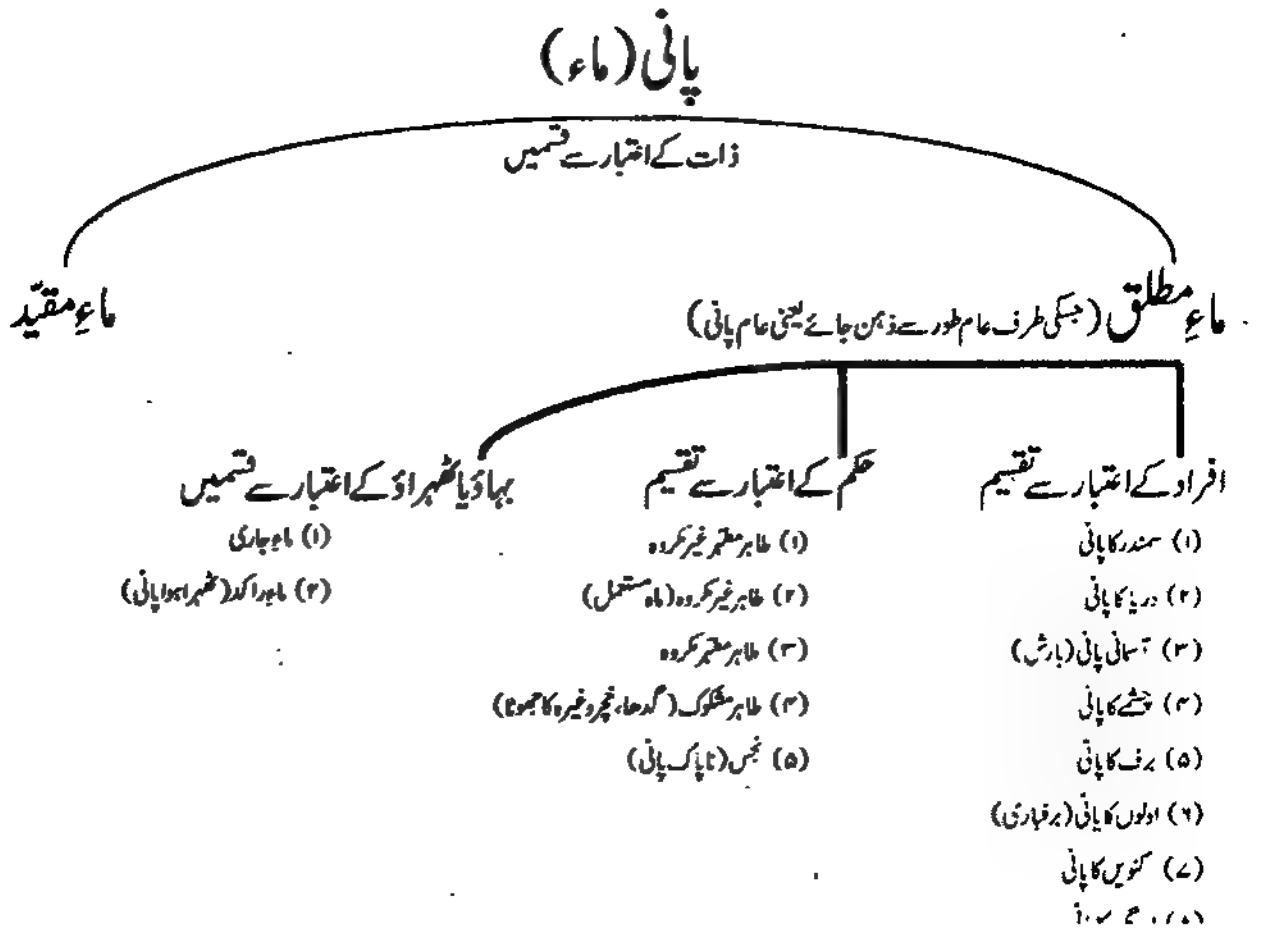 پانی (ماء)
ذات کے اعتبار سے قسمیں
ماءِ مطلق (جسکی طرف عام طور سے ذہن جائے یعنی عام پانی)
ماءِ مقیّد
افراد کے اعتبار سے تقسیم
(۱) سمندر کا پانی
(۲) دریا کا پانی
(۳) آسمانی پانی (بارش)
(۴) چشمے کا پانی
(۵) برف کا پانی
(۶) اولوں کا پانی (برفباری)
(۷) کنویں کا پانی
(۸)
حکم کے اعتبار سے تقسیم
(۱) طاہر مطہر غیر مکروہ
(۲) طاہر غیر مکروہ (ماء مستعمل)
(۳) طاہر مطہر مکروہ
(۴) طاہر مشکوک (گدھا، خچر وغیرہ کا جھوٹا)
(۵) نجس (ناپاک پانی)
بہاؤ یا ٹھہراؤ کے اعتبار سے قسمیں
(۱) ماءِ جاری
(۲) ماءِ راکد (ٹھہرا ہوا پانی)